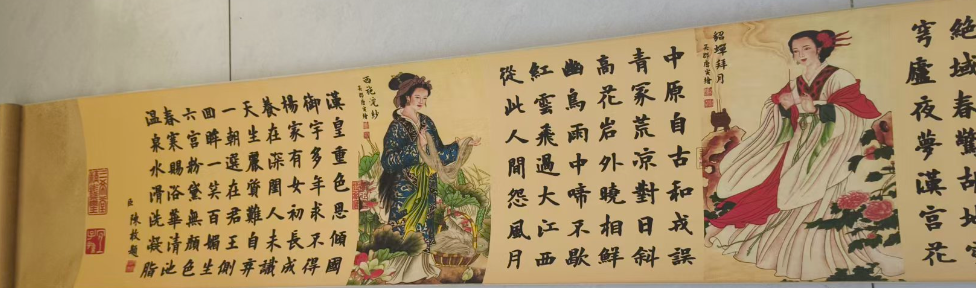 絕域春
穹廬夜夢漢宮花
嬋拜月
吳郡唐寅繪
中原自古和戎誤
青冢荒涼對日斜
高花岩外曉相鮮
幽鳥雨中啼不歇
紅雲飛過大江西
從此人間怨風月
西施浣紗
吳郡唐寅繪
漢皇重色思傾國
御宇多年求不得
楊家有女初長成
養在深閨人未識
天生麗質難自弃
一朝選在君王側
四眸一笑百媚生
六宮粉黛無顏色
春寒賜浴華清池
温泉水滑洗凝脂
臣陳枚題